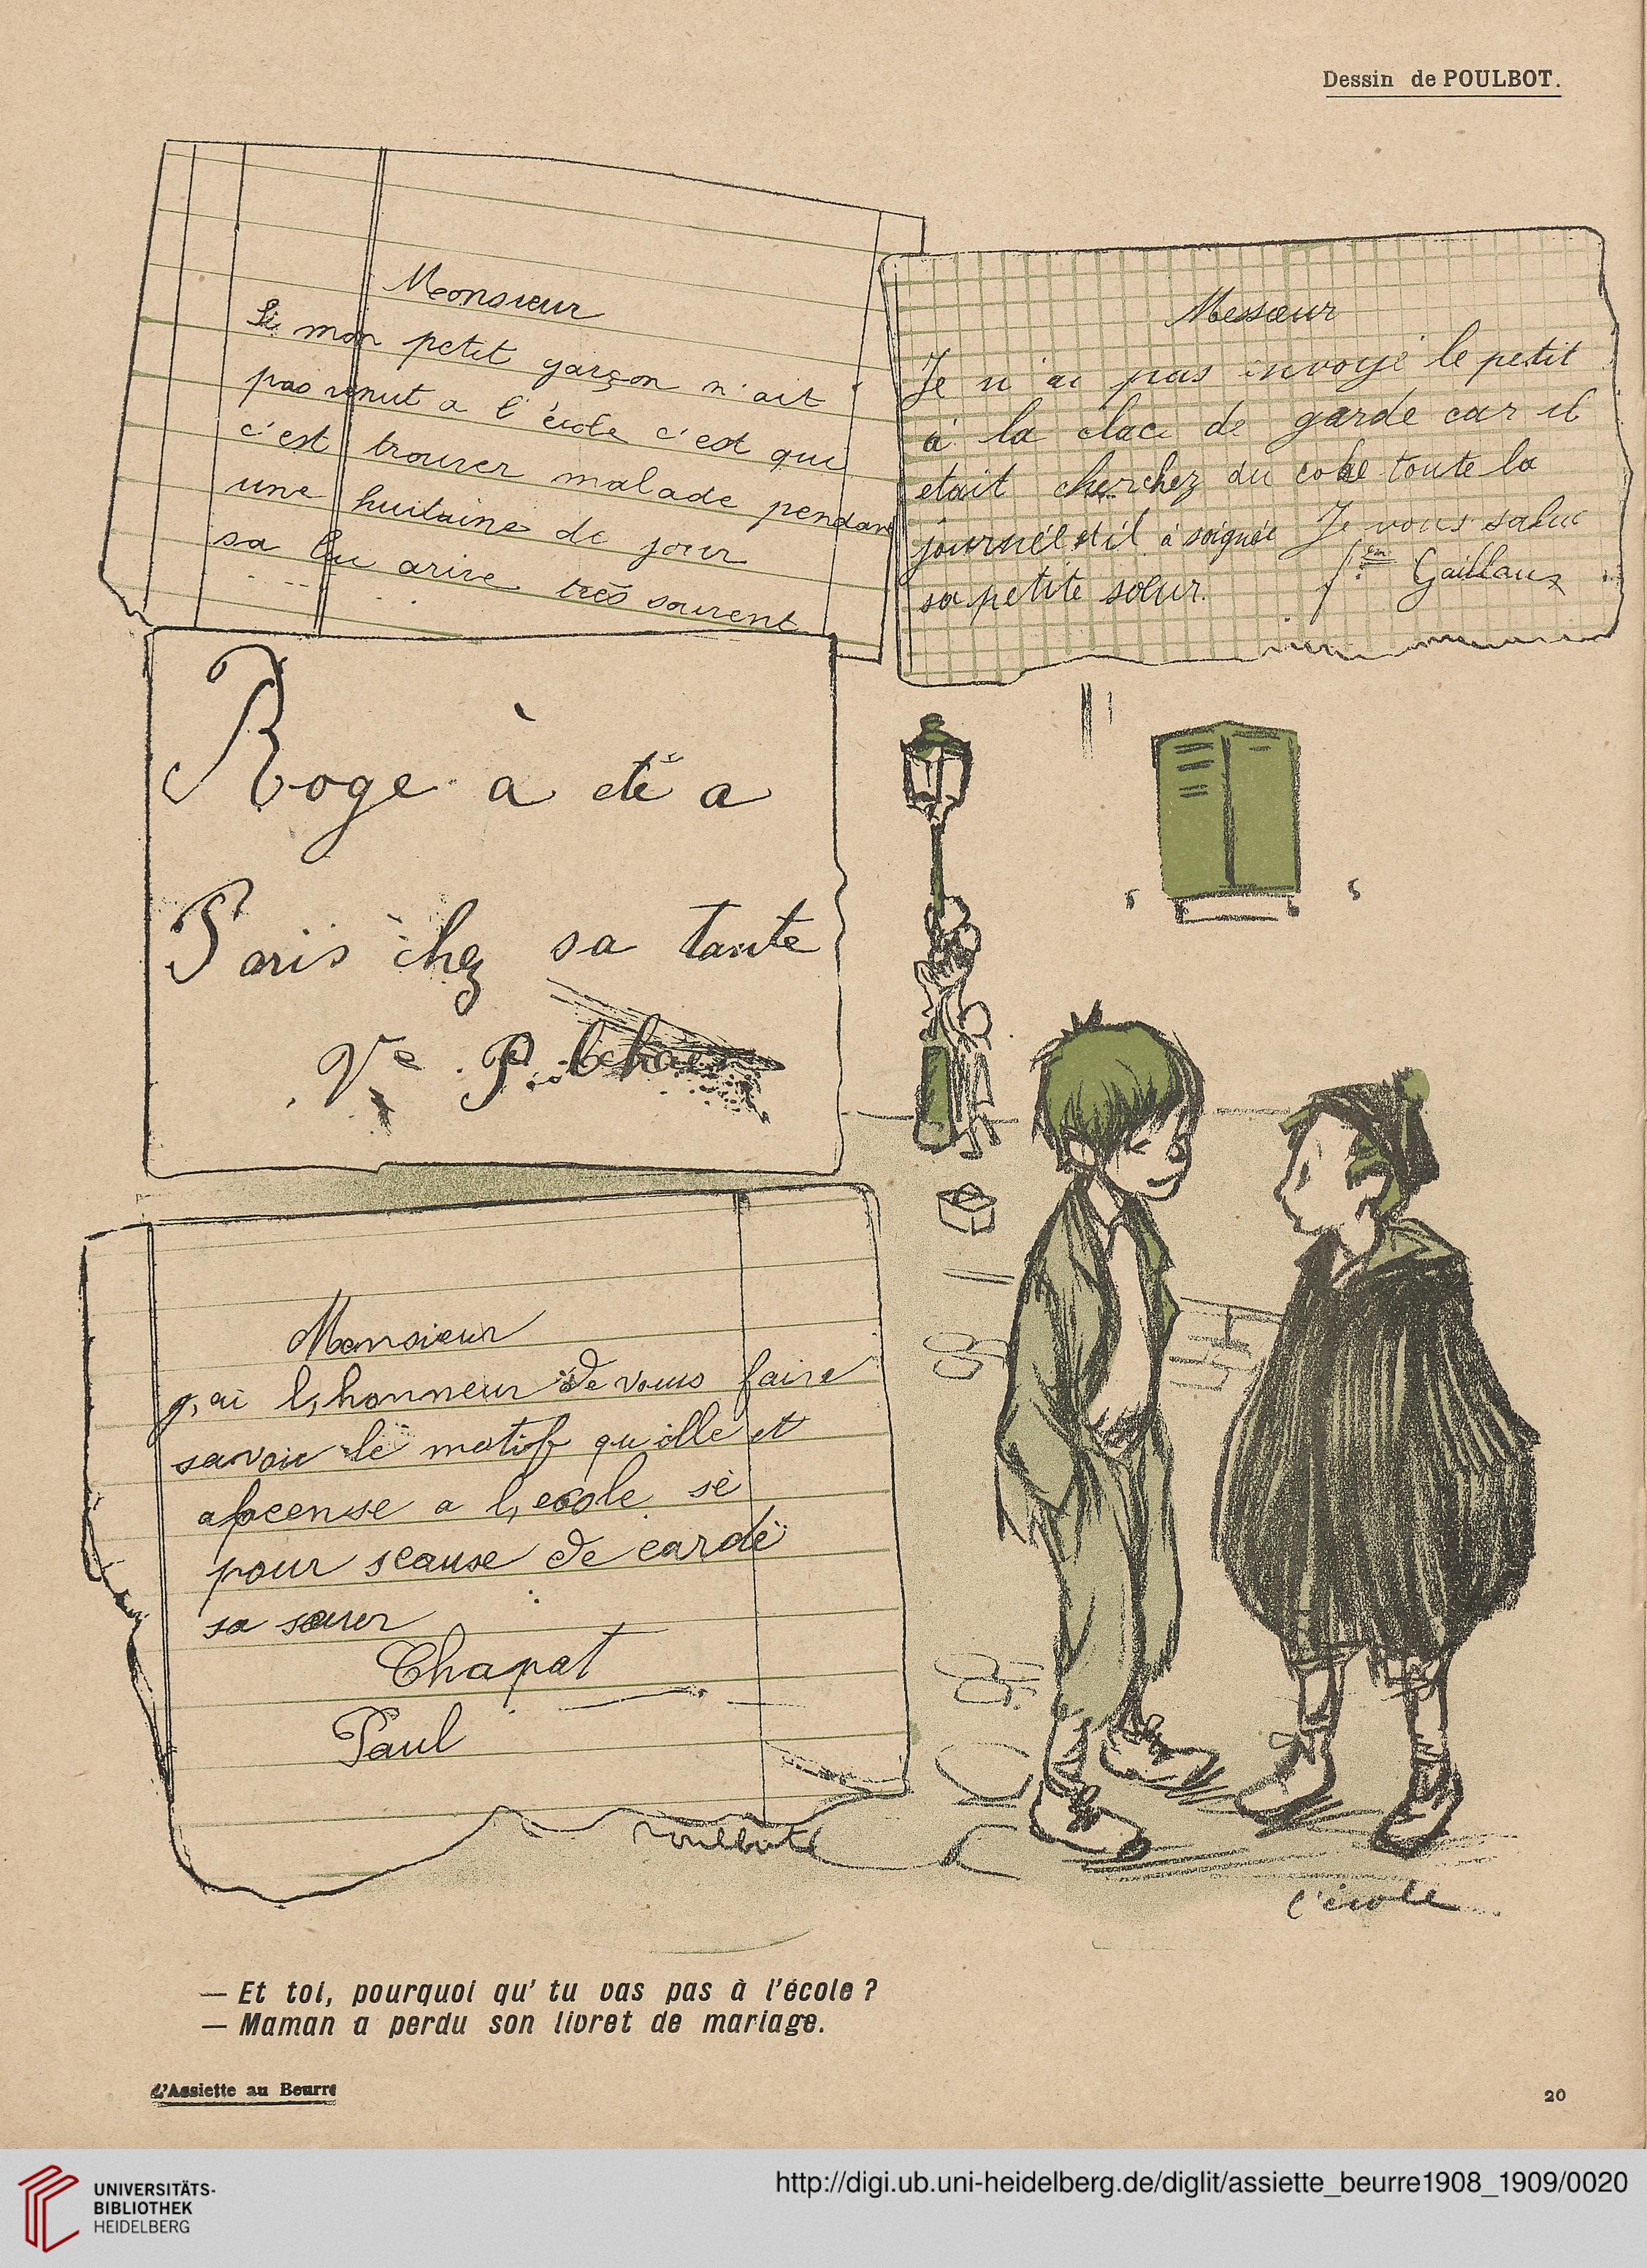 Dessin de POULBOT.
Monsieur
Si mon petit garçon n'ait
pas venut a l'école c'est qui
c'est trouver malade pendant
une huitaine de jour
sa lui arive très souvent
Messœur
Je n'ai pas envoyé le petit
à la clace de garde car il
etait cherchez du coke toute la
journéé et il à soignéé
sa petite sœur.
Je vous salue
Gaillaux
Roge à eté a
Paris chez sa tante
Ve. P
Monsieur
g,ai l,honneur de vous faire
savoir le motif qu'ille et
abcense a l,ecole sè
pour scause de cardé
sa sœur
Chapat
Paul
Poulbot
l'école
— Et toi, pourquoi qu' tu vas pas à l'école ?
— Maman a perdu son livret de mariage.
L'Assiette au Beurre
20
UNIVERSITÄTS-
BIBLIOTHEK
HEIDELBERG
http://digi.ub.uni-heidelberg.de/diglit/assiette_beurre1908_1909/0020